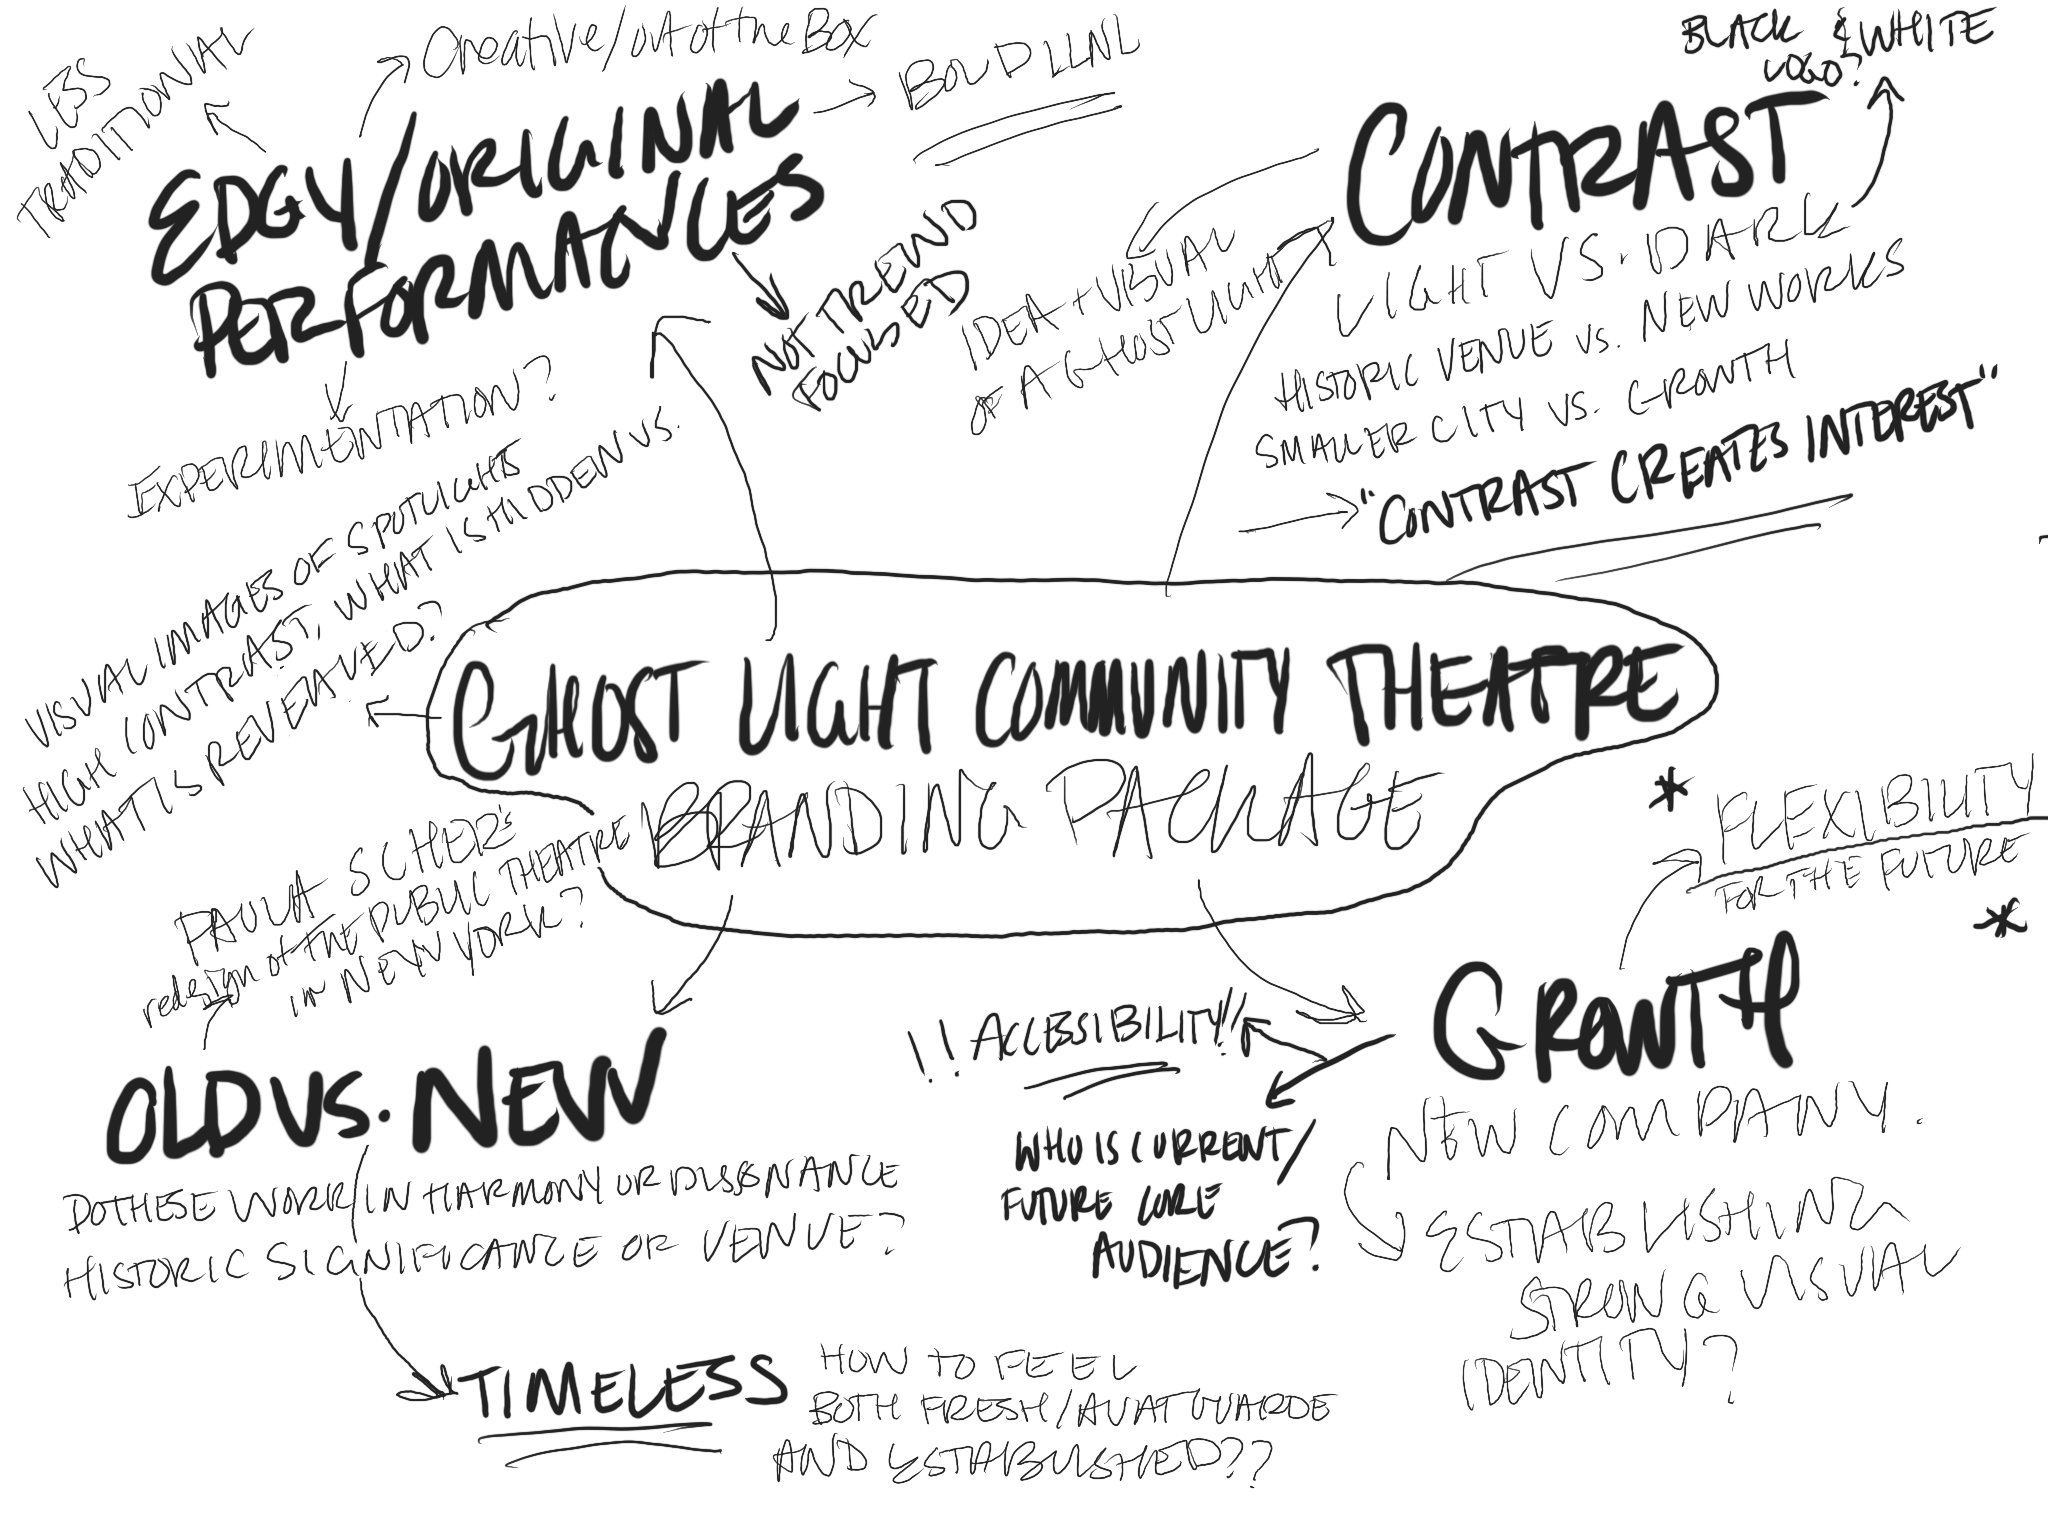 LESS
TRADITIONAL
Creative/out of the Box
BOLD
EDGY/ORIGINAL
PERFORMANCES
NOT TREND
FOCUSED
EXPERIMENTATION?
BLACK & WHITE
LOGO?
CONTRAST
LIGHT VS. DARK
HISTORIC VENUE VS. NEW WORKS
SMALLER CITY VS. GROWTH
"CONTRAST CREATES INTEREST"
IDEA + VISUAL
OF A GHOST LIGHT
VISUAL IMAGES OF SPOTLIGHTS
HIGH CONTRAST, WHAT IS HIDDEN VS.
WHAT IS REVEAVED?
GHOST LIGHT COMMUNITY THEATRE
BRANDING PACKAGE
PAULA SCHER's
redesign of the PUBLIC THEATRE
in NEW YORK?
OLD VS. NEW
DO THESE WORK IN HARMONY OR DISSONANCE
HISTORIC SIGNIFICANCE OF VENUE?
TIMELESS
HOW TO FEEL
BOTH FRESH/AVAT GUARDE
AND ESTABLISHED??
* FLEXIBILITY
FOR THE FUTURE
*
GROWTH
!! ACCESSIBILITY!!
WHO IS CURRENT/
FUTURE CORE
AUDIENCE?
NEW COMPANY.
ESTABLISHING
STRONG VISUAL
IDENTITY?